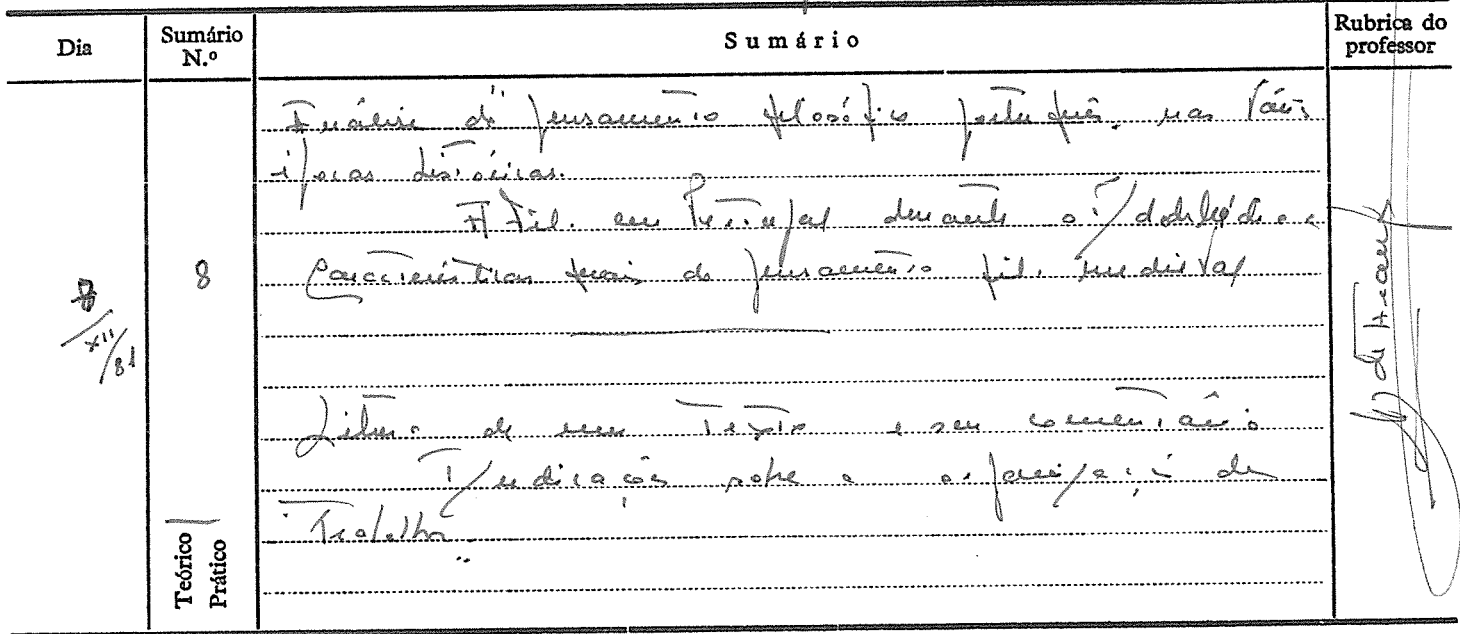 Dia
Sumário N.º
Sumário
Rubrica do professor
Análise do pensamento filosófico português nas várias
épocas históricas.
A Fil. em Portugal durante a Idade Média
Características gerais do pensamento fil. medieval
8
/XII/81
Leitura de um Texto e seu comentário
Indicações sobre a organização do
Trabalho
Teórico
Prático